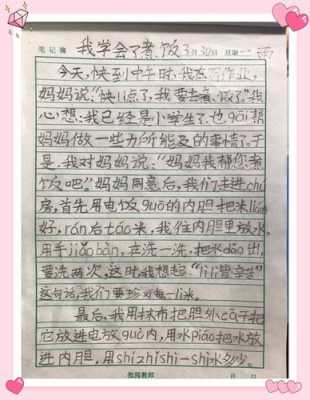 笔记簿 我学会了煮饭 3月30日 星期一 雨
今天,快到中午时,我在写作业,
妈妈说:“快11点了,我要去煮饭了。”我
心想:我已经是小学生了,也gāi帮
妈妈做一些力所能及的事情了。于
是,我对妈妈说:“妈妈我帮您煮
饭吧。”妈妈同意后,我们走进chú
房,首先用电饭guō的内胆把米liáng
好,rán后táo米,我往内胆里放水,
用手jiǎo bàn,在洗一洗,把水dào出,
要洗两次。这时,我想起“lì lì皆辛苦”
这句话,我们要珍惜每一lì米。
最后,我用抹布把胆外cā干把
它放进电放guō内,用水piáo把水放
进内胆,用shí zhǐ shì一shì水多少。
教阅教师 月 日